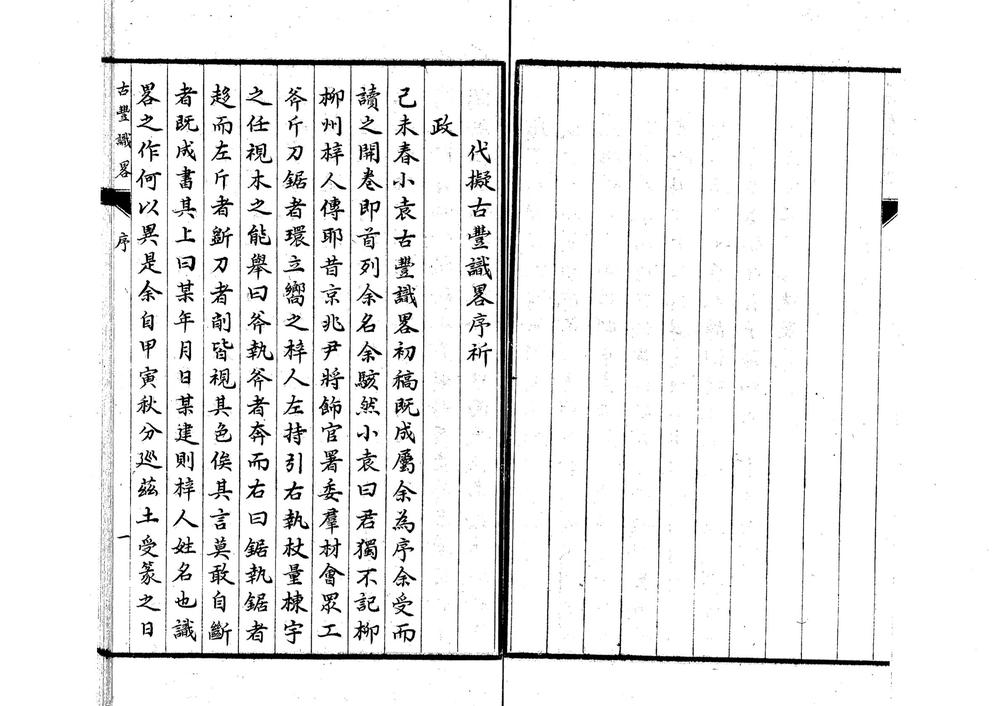 代擬古豐識畧序祈
政
己未春小袁古豐識畧初稿既成屬余為序余受而
讀之開卷即首列余名余駭然小袁曰君獨不記柳
柳州梓人傳耶昔京兆尹將飾官署委羣材會眾工
斧斤刀鋸者環立嚮之梓人左持引右執杖量棟宇
之任視木之能舉曰斧執斧者奔而右曰鋸執鋸者
趍而左斤者斲刀者削皆視其色俟其言莫敢自斷
者既成書其上曰某年月日某建則梓人姓名也識
畧之作何以異是余自甲寅秋分巡茲土受篆之日
古豐識畧
序
一